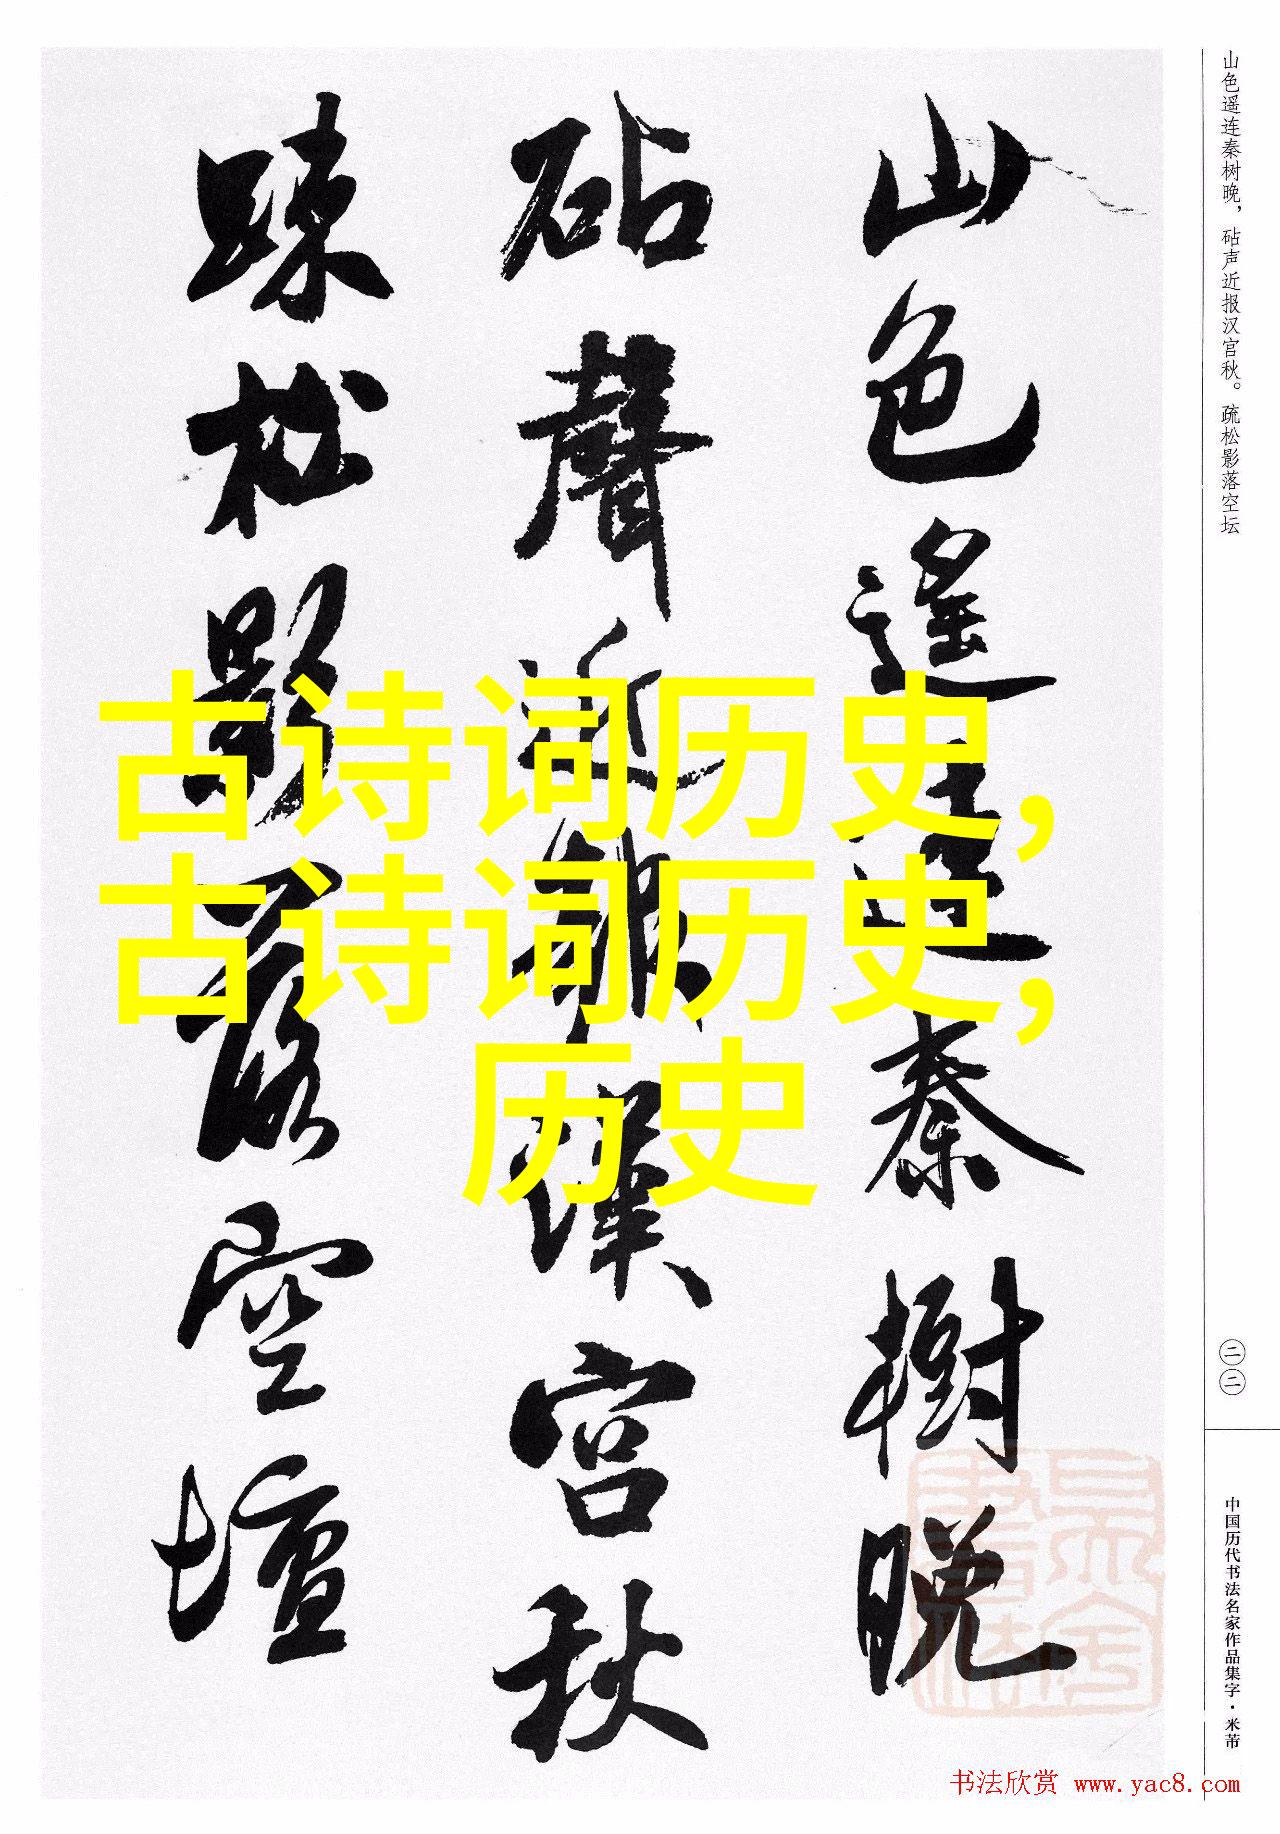 山色遥连秦树晚，砧声近报汉宫秋。疏松影落空坛
山色遙連秦樹晚
砧聲近報漢宮秋
踈松影落空壇
古诗词历史，
古诗词历史，
历史
二二
中国历代书法名家作品集字·米芾
书法欣赏 www.yac8.com